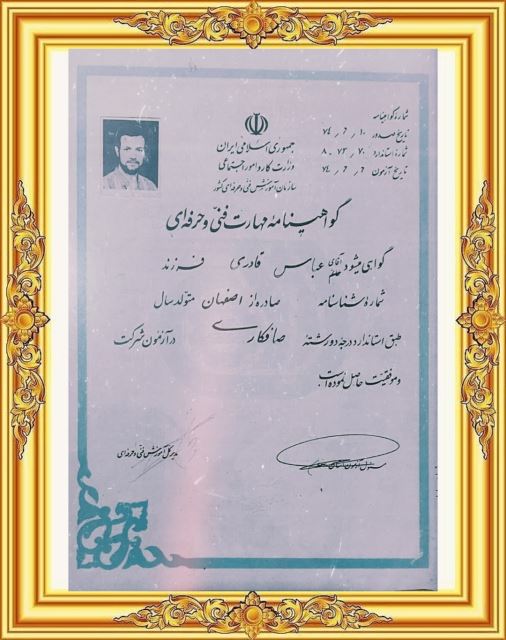 شماره گواهینامه
تاریخ صدور ۱۰ / ۶ / ۷۴
شماره استاندارد ۷۰ / ۷۳ - ۸
تاریخ آزمون ۶ / ۶ / ۷۴
جمهوری اسلامی ایران
وزارت کار و امور اجتماعی
سازمان آموزش فنی و حرفه‌ای کشور
گواهینامه مهارت فنی و حرفه‌ای
گواهی میشود آقای خانم عباس قادری فرزند
شماره شناسنامه صادره از اصفهان متولد سال
طبق استاندارد درجه دو رشته صافکاری در آزمون شرکت
و موفقیت حاصل نموده است
مدیر کل آموزش فنی و حرفه‌ای
مسئول آزمون استان